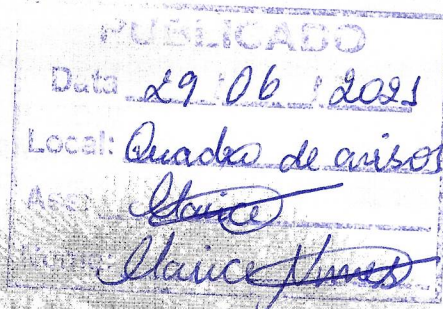 PUBLICADO
Data 29 / 06 / 2021
Local: Quadro de avisos
Ass: Clarice
Clarice Nunes